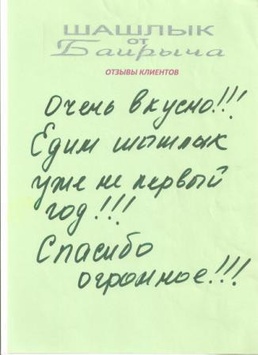 ШАШЛЫК
от
Баирыча
ОТЗЫВЫ КЛИЕНТОВ
Очень вкусно!!!
Едим шашлык
уже не первый
год!!!
Спасибо
огромное!!!